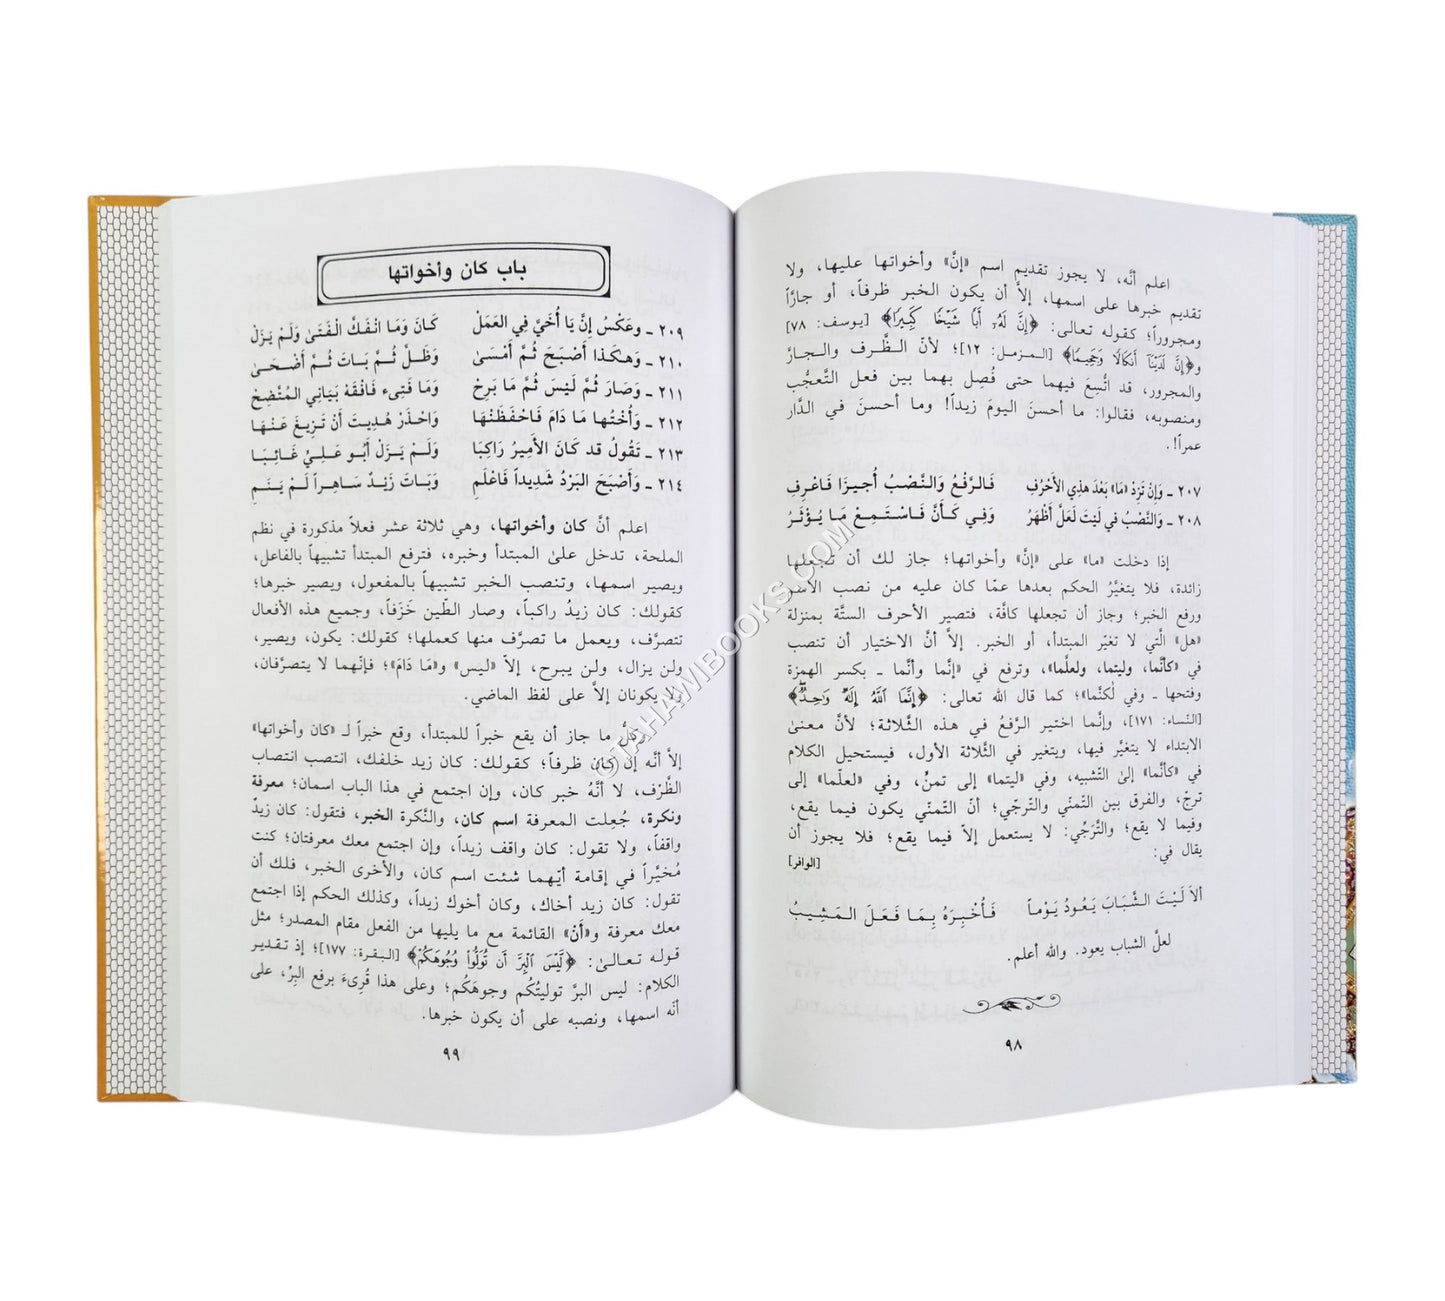 اعلم أنَّه، لا يجوز تقديم اسم «إنَّ» وأخواتها عليها، ولا
تقديم خبرها على اسمها، إلاَّ أن يكون الخبر ظرفاً، أو جارًّا
ومجروراً؛ كقوله تعالى: ﴿إِنَّ لَهُۥٓ أَبًا شَيْخًا كَبِيرًا﴾ [يوسف: ٧٨]
و﴿إِنَّ لَدَيْنَآ أَنكَالًا وَجَحِيمًا﴾ [المزمل: ١٢]؛ لأنَّ الظَّرف والـجارَّ
والمجرور، قد اتُّسِعَ فيهما حتى فُصِل بهما بين فعل التَّعجُّب
ومنصوبه، فقالوا: ما أحسنَ اليومَ زيداً! وما أحسنَ في الدَّار
عمراً!.
٢٠٧ ـ وَإِنْ تَزِدْ «مَا» بَعْدَ هذِي الأَحْرُفِ فَالرَّفْعُ وَالنَّصْبُ أُجيـزَا فَاعْرِفِ
٢٠٨ ـ وَالنَّصْبُ في لَيْتَ لَعَلَّ أَظْهَرُ وَفِي كَأَنَّ فَاسْتَمِعْ مَا يُؤْثَرُ
إذا دخلت «ما» على «إنَّ» وأخواتها؛ جاز لك أن تجعلها
زائدة، فلا يتغيَّرُ الحكم بعدها عمّا كان عليه من نصب الاسم
ورفع الخبر؛ وجاز أن تجعلها كافّة، فتصير الأحرف الستَّة بمنزلة
«هل» الَّتي لا تغيّر المبتدأ، أو الخبر. إلاَّ أنَّ الاختيار أن تنصب
في «كأنَّما، وليتما، ولعلَّما»، وترفع في «إنَّما وأنَّما ـ بكسر الهمزة
وفتحها ـ وفي لٰكنَّما»؛ كما قال الله تعالى: ﴿إِنَّمَا ٱللَّهُ إِلَٰهٌ وَٰحِدٌ﴾
[النساء: ١٧١]، وإنَّما اختير الرَّفعُ في هذه الثَّلاثة؛ لأنَّ معنىٰ
الابتداء لا يتغيَّر فيها، ويتغير في الثَّلاثة الأول، فيستحيل الكلام
في «كأنَّما» إلىٰ التّشبيه، وفي «ليتما» إلى تمنٍّ، وفي «لعلّما» إلى
ترجٍّ، والفرق بين التّمنّي والتّرجّي؛ أنّ التّمنّي يكون فيما يقع،
وفيما لا يقع؛ والتَّرَجّي: لا يستعمل إلاّ فيما يقع؛ فلا يجوز أن
يقال في: [الوافر]
ألاَ لَيْتَ الشَّبَابَ يَعُودُ يَوْماً فَأُخْبِرَهُ بِمَا فَعَلَ الـمَشِيبُ
لعلَّ الشباب يعود. والله أعلم.
٩٨
باب كان وأخواتها
٢٠٩ ـ وعَكْسُ إِنَّ يَا أُخَيَّ فِي العَمَلْ كَانَ وَمَا انْفَكَّ الْفَتَىٰ وَلَمْ يَزَلْ
٢١٠ ـ وَهـكَـذا أَصْبَحَ ثُمَّ أَمْسَىٰ وَظَلَّ ثُمَّ بَاتَ ثُمَّ أَضْحَىٰ
٢١١ ـ وَصَارَ ثُمَّ لَيْسَ ثُمَّ مَا بَرِحْ وَمَا فَتِىءَ فَافْقَهْ بَيَانِي المُتَّضِحْ
٢١٢ ـ وَأُخْتُها مَا دَامَ فَاحْفَظَنْهَا وَاحْذَرْ هُدِيتَ أَنْ تَزِيغَ عَنْهَا
٢١٣ ـ تَقُولُ قد كَانَ الأَمِيرُ رَاكِبَا وَلَمْ يَزَلْ أَبُو عَلِيٍّ غَائِبَا
٢١٤ ـ وَأَصْبَحَ البَرْدُ شَدِيداً فَاعْلَمِ وَبَاتَ زَيْدٌ سَاهِراً لَمْ يَنَمِ
اعلم أنَّ كان وأخواتها، وهي ثلاثة عشر فعلاً مذكورة في نظم
الملحة، تدخل علىٰ المبتدأ وخبره، فترفع المبتدأ تشبيهاً بالفاعل،
ويصير اسمها، وتنصب الخبر تشبيهاً بالمفعول، ويصير خبرها؛
كقولك: كان زيدٌ راكباً، وصار الطّين خَزَفاً، وجميع هذه الأفعال
تتصرَّف، ويعمل ما تصرَّف منها كعملها؛ كقولك: يكون، ويصير،
ولن يزال، ولن يبرح، إلاّ «ليس» و«مَا دَامَ»؛ فإنّهما لا يتصرَّفان،
ولا يكونان إلاَّ على لفظ الماضي.
وكلُّ ما جاز أن يقع خبراً للمبتدأ، وقع خبراً لـ «كان وأخواتها»
إلاَّ أنَّه إن كان ظرفاً؛ كقولك: كان زيد خلفك، انتصب انتصاب
الظَّرْف، لا أنَّهُ خبر كان، وإن اجتمع في هذا الباب اسمان؛ معرفة
ونكرة، جُعِلت المعرفة اسم كان، والنَّكرة الخبر، فتقول: كان زيدٌ
واقفاً، ولا تقول: كان واقف زيداً، وإن اجتمع معك معرفتان؛ كنت
مُخيَّراً في إقامة أيّهما شئت اسم كان، والأخرى الخبر، فلك أن
تقول: كان زيد أخاك، وكان أخوك زيداً، وكذلك الحكم إذا اجتمع
معك معرفة و«أَنْ» القائمة مع ما يليها من الفعل مقام المصدر؛ مثل
قوله تعالىٰ: ﴿لَّيْسَ ٱلْبِرَّ أَن تُوَلُّوا۟ وُجُوهَكُمْ﴾ [البقرة: ١٧٧]؛ إذ تقدير
الكلام: ليس البرَّ توليتُكُم وجوهَكُم؛ وعلى هذا قُرِىءَ برفع البِرّ، على
أنّه اسمها، ونصبه على أن يكون خبرها.
٩٩
©TAHAMIBOOKS.COM